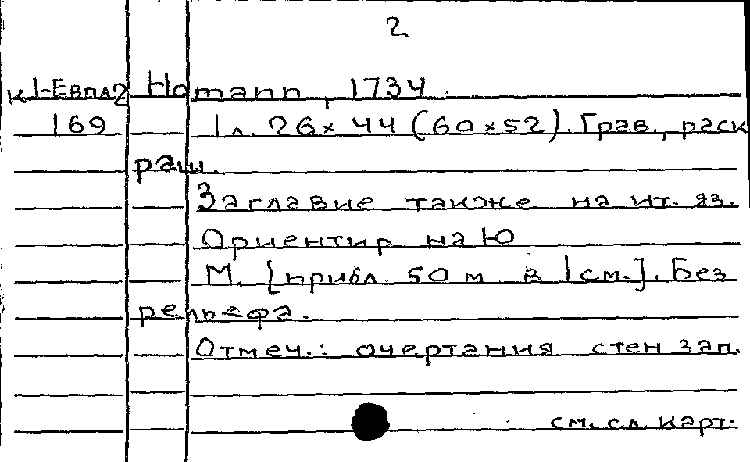 2
К1-Евпл2 Homann, 1734.
169 1 л. 26×44 (60×52). Грав., раск
раш.
Заглавие также на ит. яз.
Ориентир на Ю
М. [прибл. 50 м в 1 см.]. Без
рельефа.
Отмеч.: очертания стен зап.
см. сл. карт.